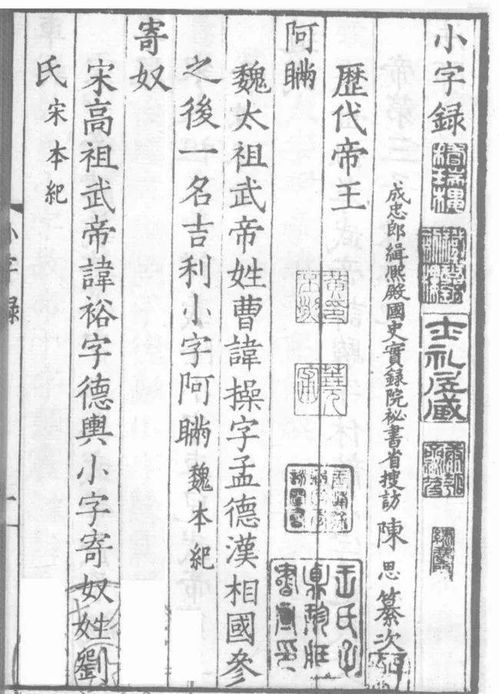 小字録
成忠郎緝熙殿國史實録院祕書省搜訪陳思纂次
歷代帝王
阿瞞
魏太祖武帝姓曹諱操字孟德漢相國參
之後一名吉利小字阿瞞魏本紀
寄奴
宋高祖武帝諱裕字德輿小字寄奴姓劉
氏宋本紀
小字録
士礼居藏